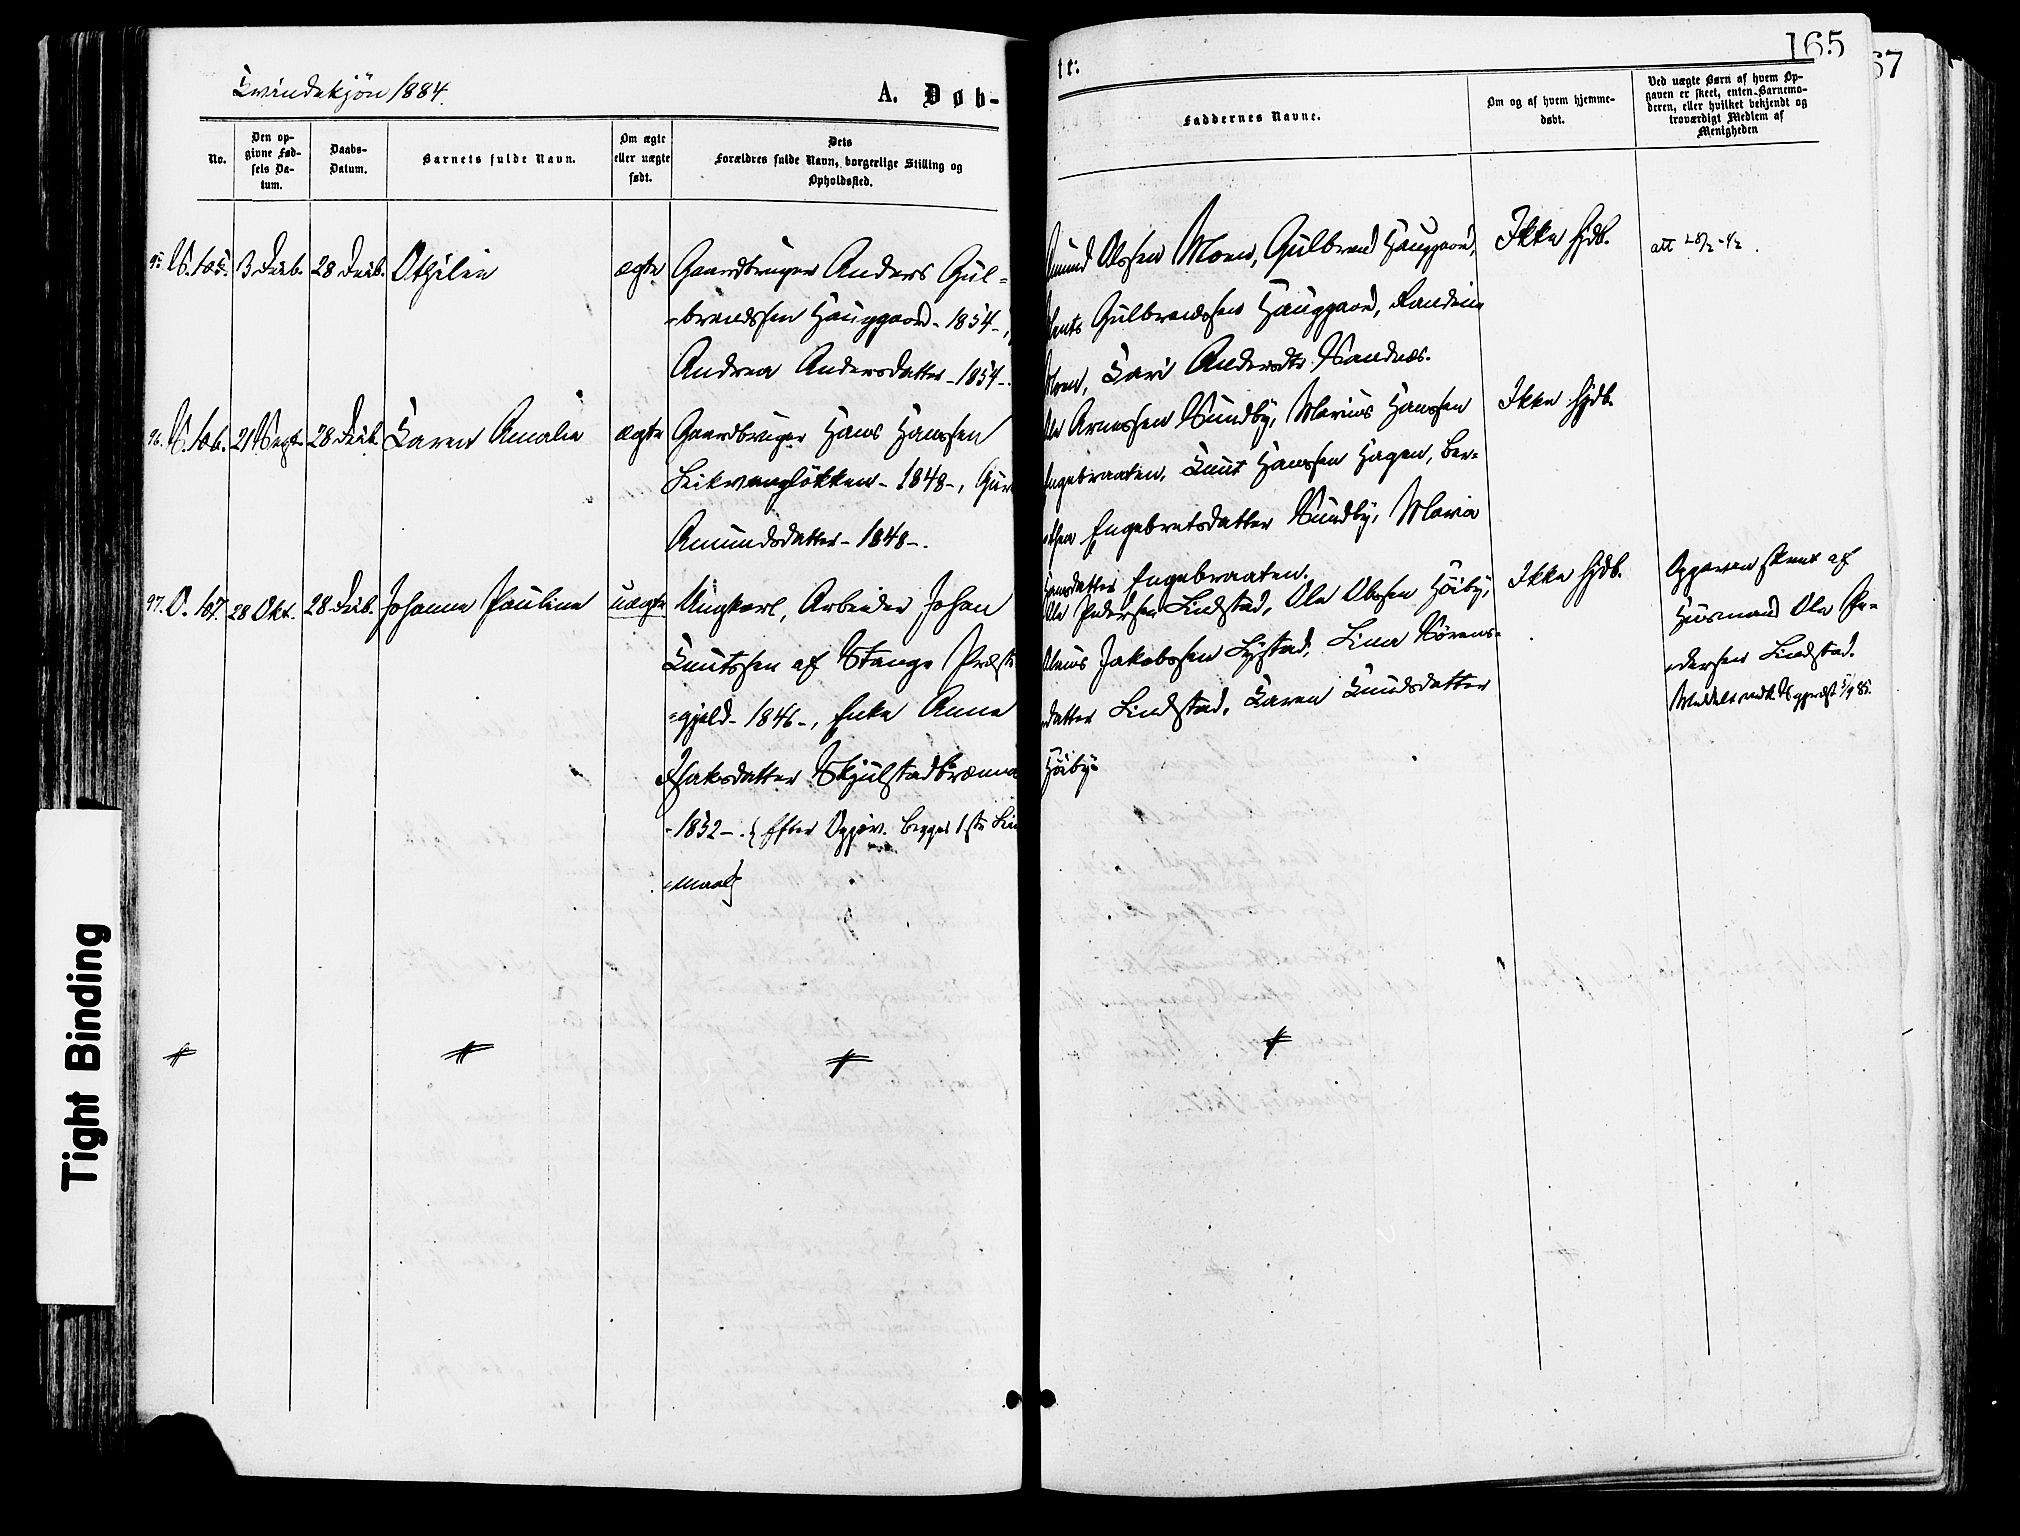 Kvindekjøn 1884.
A. Døb-
No.
Den op-
givne Fød-
sels Da-
tum.
Daabs-
Datum.
Barnets fulde Navn.
Om ægte
eller uægte
født.
Dets
Forældres fulde Navn, borgerlige Stilling og
Opholdssted.
95.
28 Deib.
Othilie
ægte
Gaardbruger Anders Gul-
-brandssen Hauggaard - 1854 -,
Andrea Andersdatter - 1854 -.
96.
21 Sept.
28 Deib.
Karen Amalie
ægte
Gaardbruger Hans Hanssen
Leikvangløkken - 1848 -, Guri
Amundsdatter - 1848 -.
97.
28 Okt.
28 Deib.
Johanne Pauline
uægte
Ungkarl, Arbeider Johan
Knutssen af Stange Præste
-gjeld - 1846 -, Enke Anne
Isaksdatter Skjulstadbrænna
- 1852 -. (Efter Opgiv. begges 1ste Lei
-maal)
165
67
te:
Faddernes Navne.
Om og af hvem hjemme-
døbt.
Ved uægte Børn af hvem Op-
gaven er skeet, enten Barnemo-
deren, eller hvilket bekjendt og
troværdigt Medlem af
Menigheden
Amund Olssen Moen, Gulbrand Hauggaard,
Gulbrandssen Hauggaard, Randine
Moen, Kari Andersdtr. Sandnæs.
Ikke Hjdb.
att
Ole Arnessen Sundby, Marius Hanssen
Engebraaten, Knut Hanssen Hagen, Ber-
-thea Engebretsdatter Sundby, Maria
Hansdatter Engebraaten.
Ikke Hjdb.
Ole Pedersen Lindstad, Ole Olssen Høiby,
Olaus Jakobssen Lystad, Lina Sørens-
-datter Lindstad, Karen Knudsdatter
Høiby
Ikke Hjdb.
Opgaven skeet af
Husmand Ole Pe-
-dersen Lindstad.
Tight Binding